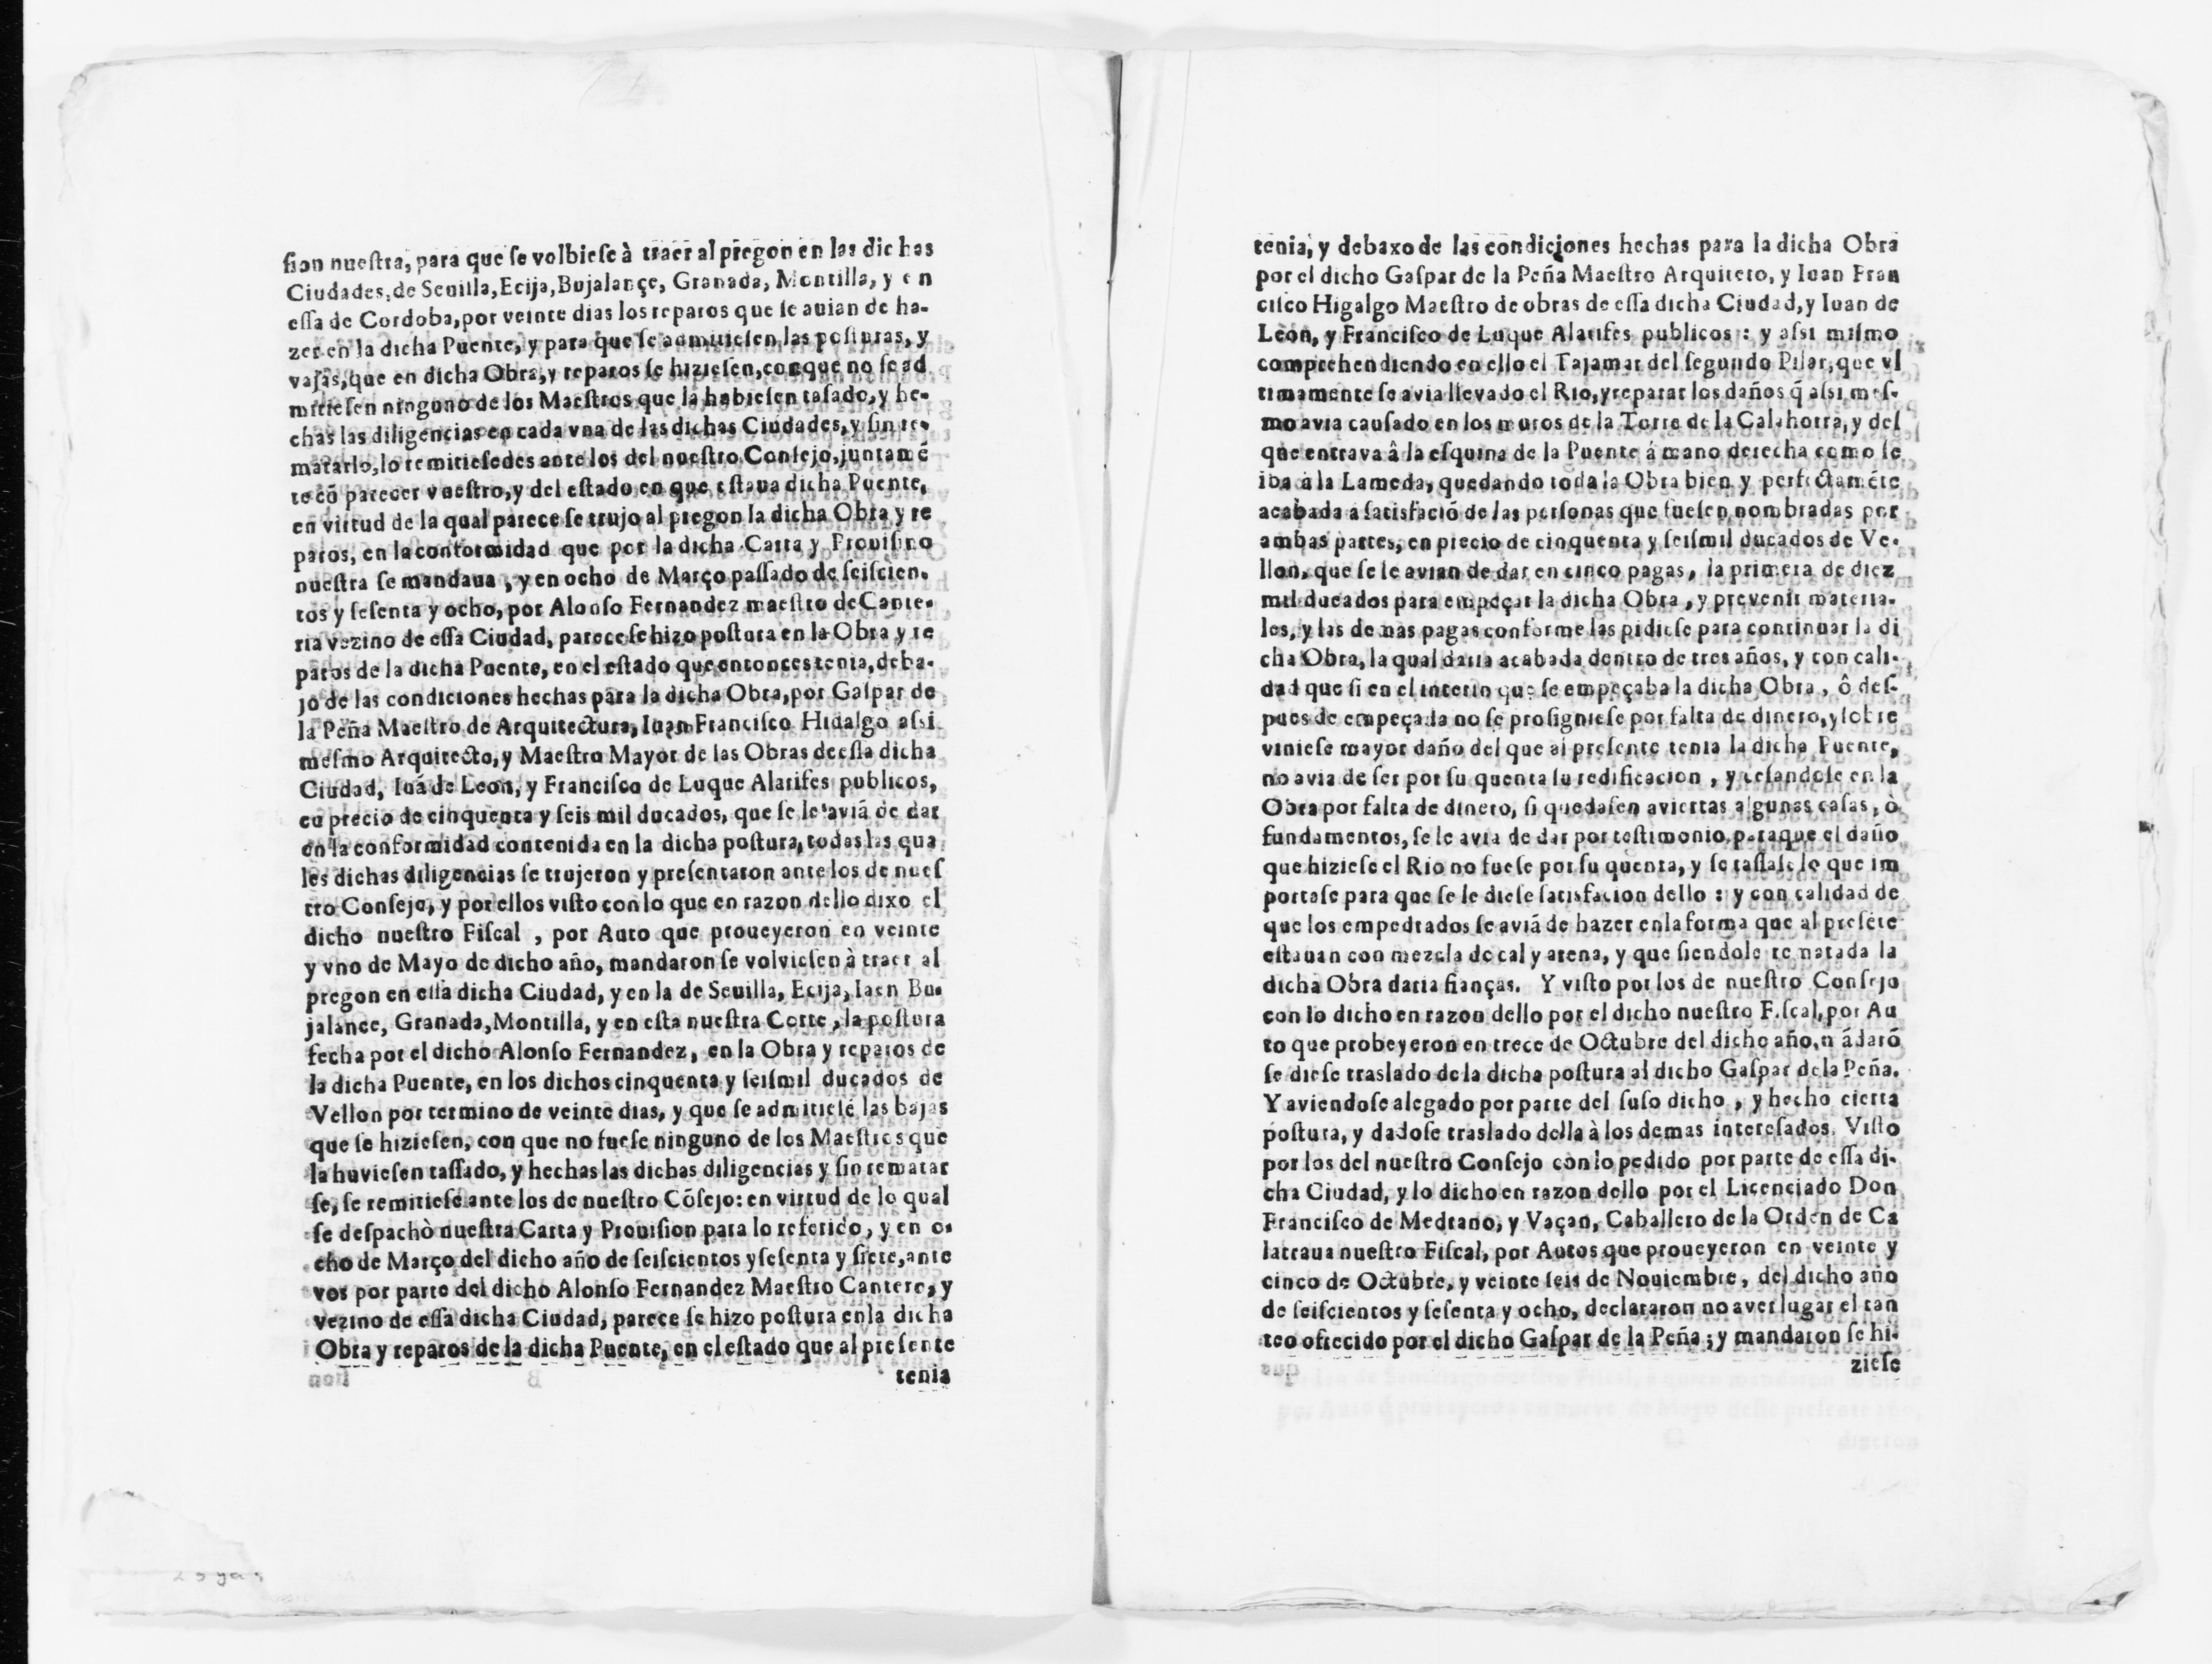 ſion nueſtra, para que ſe volbieſe à traer al pregon en las dichas
Ciudades, de Seuilla, Ecija, Bujalançe, Granada, Montilla, y en
eſſa de Cordoba, por veinte dias los reparos que ſe auian de ha-
zer en la dicha Puente, y para que ſe admitieſen las poſturas, y
vajas, que en dicha Obra, y reparos ſe hizieſen, conque no ſe ad
mitieſen ninguno de los Maeſtros que la habieſen taſado, y he-
chas las diligencias en cada vna de las dichas Ciudades, y ſin re-
matarlo, lo remitieſedes ante los del nueſtro Conſejo, juntamē
te cō parecer vueſtro, y del eſtado en que eſtaua dicha Puente,
en virtud de la qual parece ſe trujo al pregon la dicha Obra y re
paros, en la conformidad que por la dicha Carta y Prouiſino
nueſtra ſe mandaua, y en ocho de Março paſſado de ſeiſcien-
tos y ſeſenta y ocho, por Alonſo Fernandez maeſtro de Cante-
ria vezino de eſſa Ciudad, parece ſe hizo poſtura en la Obra y re
paros de la dicha Puente, en el eſtado que entonces tenia, deba-
jo de las condiciones hechas para la dicha Obra, por Gaſpar de
la Peña Maeſtro de Arquitectura, Iuan Franciſco Hidalgo aſsi
meſmo Arquitecto, y Maeſtro Mayor de las Obras de eſſa dicha
Ciudad, Iuá de Leon, y Franciſco de Luque Alarifes publicos,
en precio de cinquenta y ſeis mil ducados, que ſe le aviá de dar
en la conformidad contenida en la dicha poſtura, todas las qua
les dichas diligencias ſe trujeron y preſentaron ante los de nueſ
tro Conſejo, y por ellos viſto con lo que en razon dello dixo el
dicho nueſtro Fiſcal, por Auto que proueyeron en veinte
y vno de Mayo de dicho año, mandaron ſe volvieſen à traer al
pregon en eſſa dicha Ciudad, y en la de Seuilla, Ecija, Iaen Bu-
jalance, Granada, Montilla, y en eſta nueſtra Corte, la poſtura
fecha por el dicho Alonſo Fernandez, en la Obra y reparos de
la dicha Puente, en los dichos cinquenta y ſeiſmil ducados de
Vellon por termino de veinte dias, y que ſe admitieſe las bajas
que ſe hizieſen, con que no fueſe ninguno de los Maeſtros que
la huvieſen taſſado, y hechas las dichas diligencias y ſin rematar
ſe, ſe remitieſe ante los de nueſtro Cóſejo: en virtud de lo qual
ſe deſpachò nueſtra Carta y Prouiſion para lo referido, y en o-
cho de Março del dicho año de ſeiſcientos y ſeſenta y ſiete, ante
vos por parte del dicho Alonſo Fernandez Maeſtro Cantero, y
vezino de eſſa dicha Ciudad, parece ſe hizo poſtura en la dicha
Obra y reparos de la dicha Puente, en el eſtado que al preſente
tenia
tenia, y debaxo de las condiciones hechas para la dicha Obra
por el dicho Gaſpar de la Peña Maeſtro Arquiteto, y Iuan Fran
ciſco Higalgo Maeſtro de obras de eſſa dicha Ciudad, y Iuan de
Leòn, y Franciſco de Luque Alarifes publicos: y aſsi miſmo
comprehendiendo en ello el Tajamar del ſegundo Pilar, que vl
timamente ſe avia llevado el Rio, y reparar los daños q̃ aſsi meſ-
mo avia cauſado en los muros de la Torre de la Calahorra, y del
que entrava â la eſquina de la Puente á mano derecha como ſe
iba á la Lameda, quedando toda la Obra bien y perfectaméte
acabada á ſatisfació de las perſonas que fueſen nombradas por
ambas partes, en precio de cinquenta y ſeiſmil ducados de Ve-
llon, que ſe le avian de dar en cinco pagas, la primera de diez
mil ducados para empeçar la dicha Obra, y prevenir materia-
les, y las demas pagas conforme las pidieſe para continuar la di
cha Obra, la qual daria acabada dentro de tres años, y con cali-
dad que ſi en el interin que ſe empeçaba la dicha Obra, ô deſ-
pues de empeçada no ſe proſiguieſe por falta de dinero, y ſobre
vinieſe mayor daño del que al preſente tenia la dicha Puente,
no avia de ſer por ſu quenta ſu redificacion, y ceſandoſe en la
Obra por falta de dinero, ſi quedaſen aviertas algunas caſas, ò
fundamentos, ſe le avia de dar por teſtimonio, para que el daño
que hizieſe el Rio no fueſe por ſu quenta, y ſe taſſaſe lo que im
portaſe para que ſe le dieſe ſatisfacion dello: y con calidad de
que los empedrados ſe aviá de hazer enla forma que al preſéte
eſtauan con mezcla de cal y arena, y que ſiendole rematada la
dicha Obra daria fianças. Y viſto por los de nueſtro Conſejo
con lo dicho en razon dello por el dicho nueſtro Fiſcal, por Au
to que probeyeron en trece de Octubre del dicho año, mádaró
ſe dieſe traslado de la dicha poſtura al dicho Gaſpar de la Peña.
Y aviendoſe alegado por parte del ſuſo dicho, y hecho cierta
poſtura, y dadoſe traslado della à los demas intereſados. Viſto
por los del nueſtro Conſejo con lo pedido por parte de eſſa di-
cha Ciudad, y lo dicho en razon dello por el Licenciado Don
Franciſco de Medrano, y Vaçan, Caballero de la Orden de Ca
latraua nueſtro Fiſcal, por Autos que proueyeron en veinte y
cinco de Octubre, y veinte ſeis de Nouiembre, del dicho año
de ſeiſcientos y ſeſenta y ocho, declararon no aver lugar el tan
teo ofrecido por el dicho Gaſpar de la Peña; y mandaron ſe hi-
zieſe